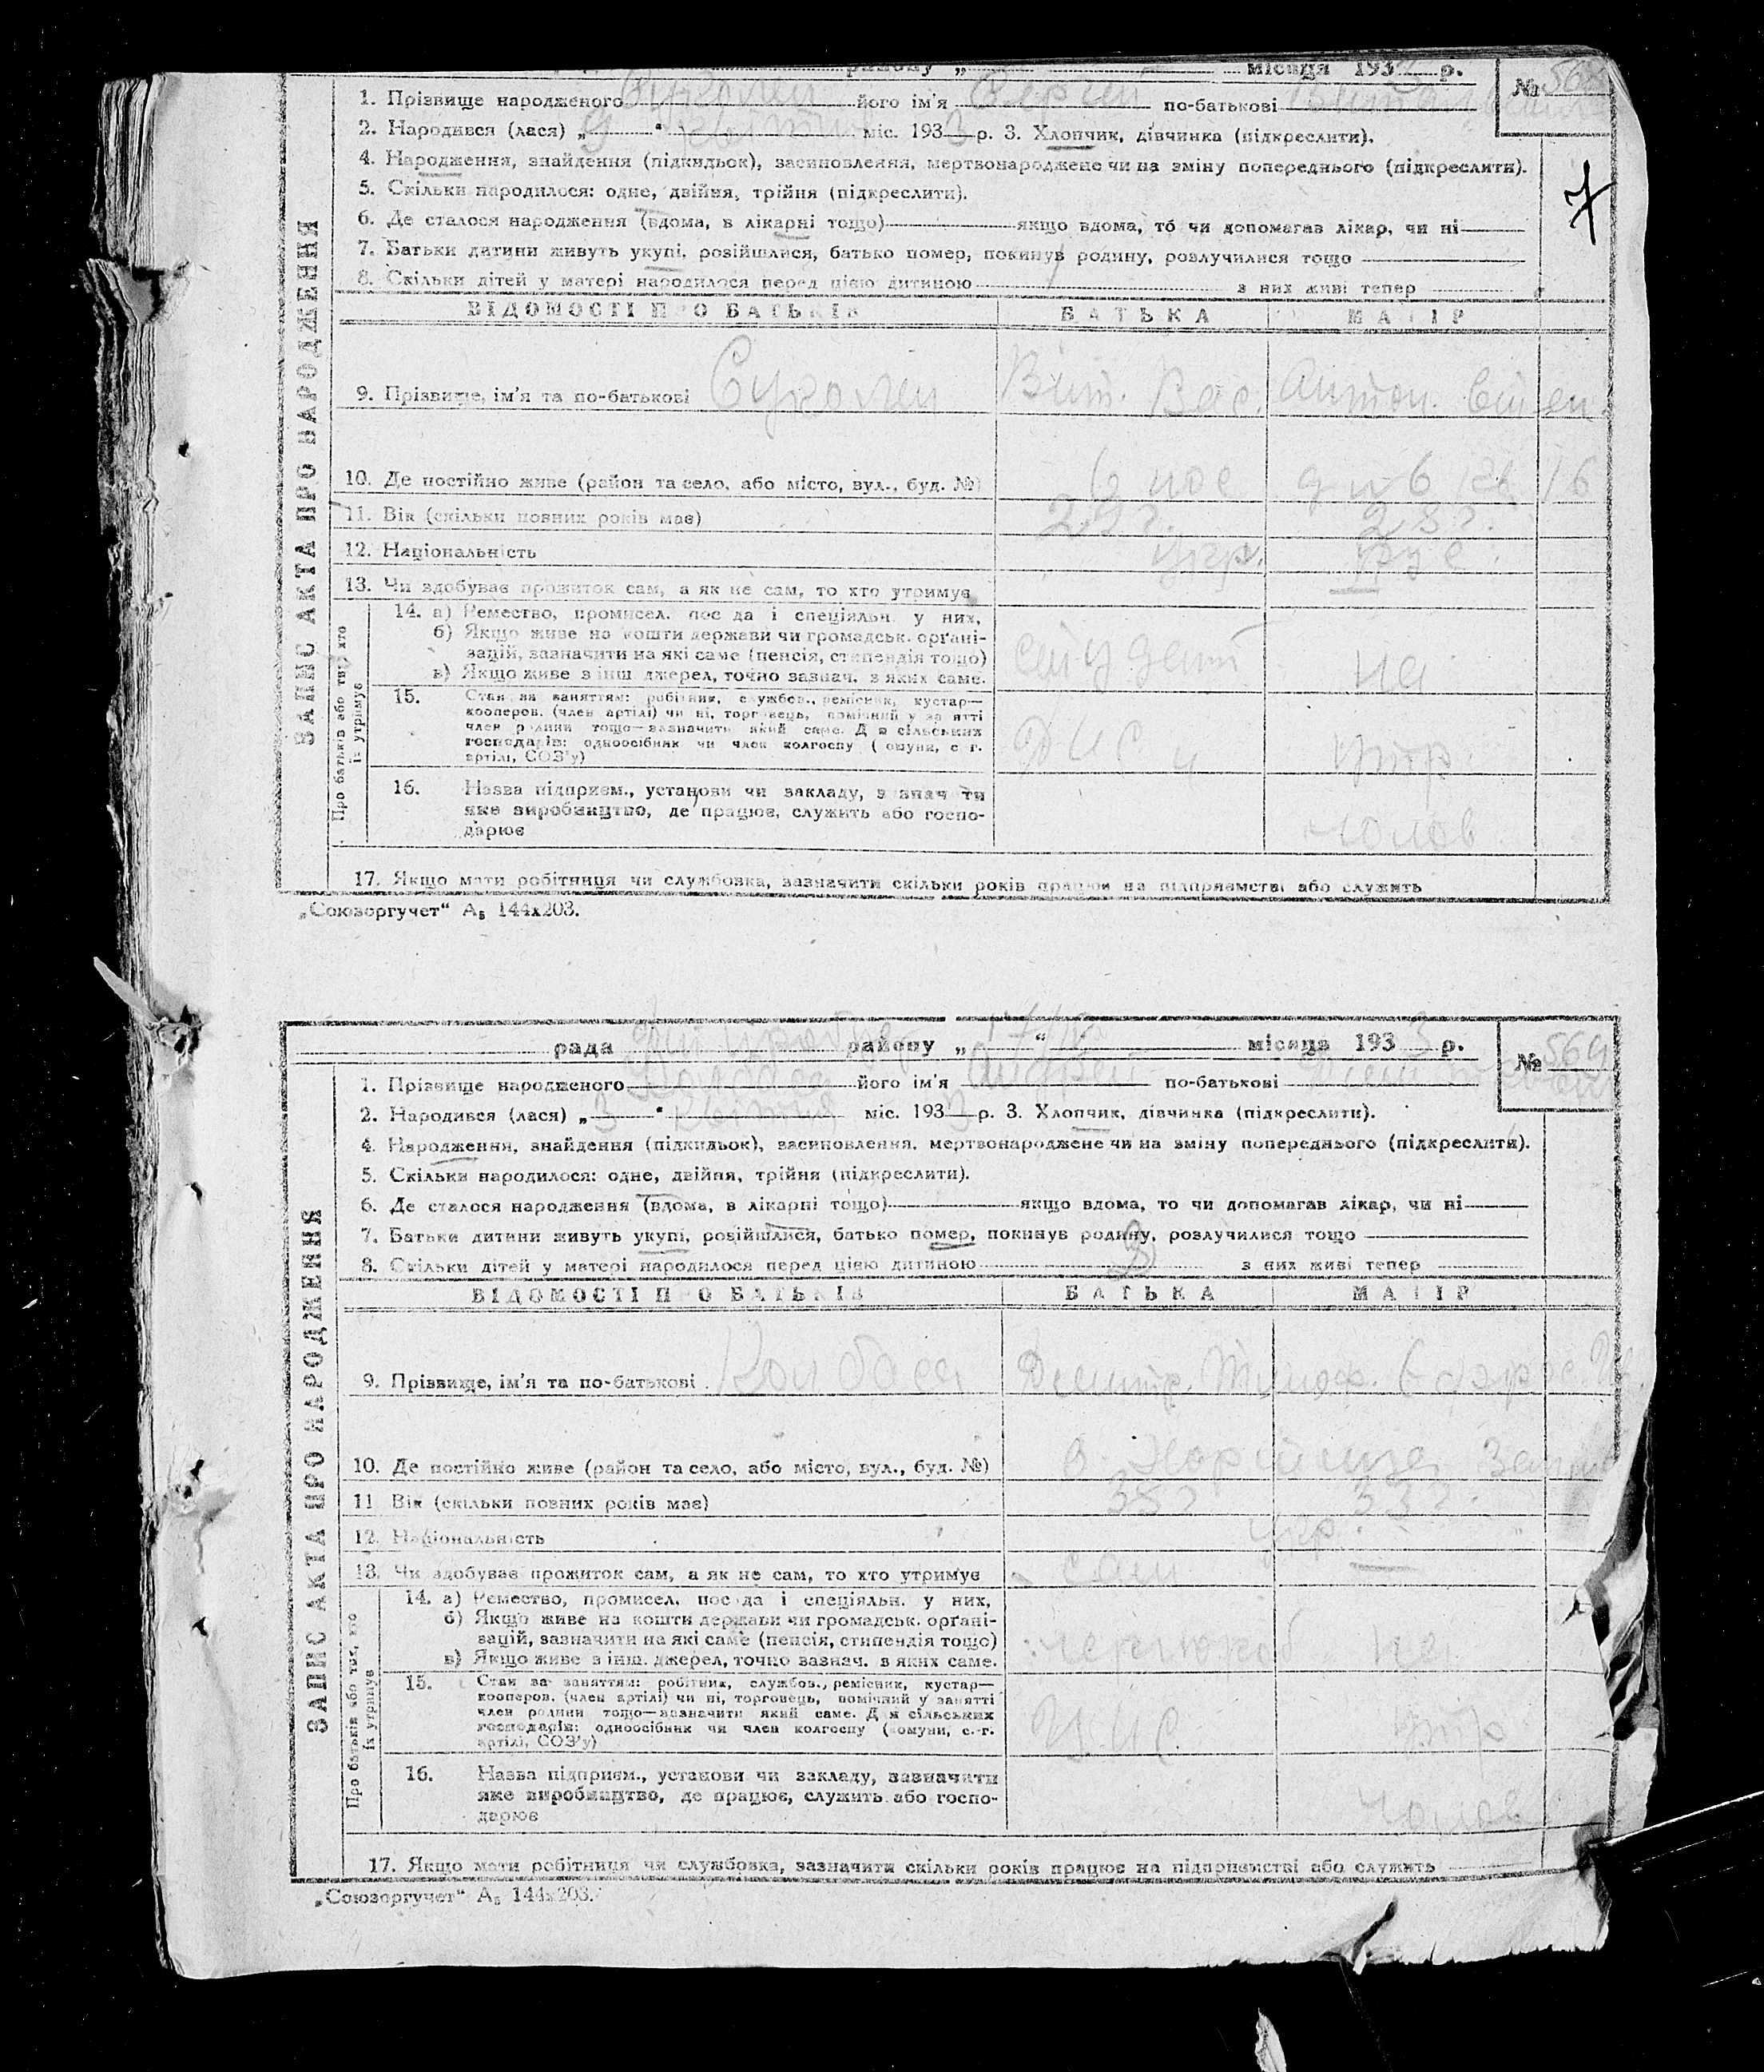 району „ “ місяця 193 р.
№ 568
1. Прізвище народженого його ім'я Сергій по-батькові
2. Народився (лася) „9“ квітня міс. 1933 р. 3. Хлопчик, дівчинка (підкреслити).
4. Народження, знайдення (підкидьок), засиновлення, мертвонароджене чи на зміну попереднього (підкреслити).
5. Скільки народилося: одне, двійня, трійня (підкреслити).
7
6. Де сталося народження (вдома, в лікарні тощо) якщо вдома, то чи допомагав лікар, чи ні
7. Батьки дитини живуть укупі, розійшлися, батько помер, покинув родину, розлучилися тощо
8. Скільки дітей у матері народилося перед цією дитиною 1 з них живі тепер
ВІДОМОСТІ ПРО БАТЬКІВ БАТЬКА МАТІР
9. Прізвище, ім'я та по-батькові Вит. Вас. Антон.
10. Де постійно живе (район та село, або місто, вул., буд. №)
11. Вік (скільки повних років має) 28 г.
12. Національність укр. рус.
13. Чи здобуває прожиток сам, а як не сам, то хто утримує
14. а) Ремество, промисел, посада і спеціяльн. у них,
б) Якщо живе на кошти держави чи громадськ. органі-
зацій, зазначити на які саме (пенсія, стипендія тощо) студент на
в) Якщо живе з інш. джерел, точно зазнач. з яких саме.
15. Стан за заняттям: робітник, службов., ремісник, кустар—
кооперов. (член артілі) чи ні, торговець, помічний у занятті
член родини тощо—зазначить який саме. Для сільських
господарів: одноосібник чи член колгоспу (комуни, с.-г.
артілі, СОЗ'у) утр.
16. Назва підприєм., установи чи закладу, зазначити
яке виробництво, де працює, служить або госпо-
дарює чолов
17. Якщо мати робітниця чи службовка, зазначити скільки років працює на підприємстві або служить
ЗАПИС АКТА ПРО НАРОДЖЕННЯ
Про батьків або тих, хто
їх утримує
„Союзоргучет“ А₅ 144х203.
рада району „17“ місяця 1933 р.
№ 569
1. Прізвище народженого його ім'я Андрей по-батькові
2. Народився (лася) „3“ квітня міс. 1933 р. 3. Хлопчик, дівчинка (підкреслити).
4. Народження, знайдення (підкидьок), засиновлення, мертвонароджене чи на зміну попереднього (підкреслити).
5. Скільки народилося: одне, двійня, трійня (підкреслити).
6. Де сталося народження (вдома, в лікарні тощо) якщо вдома, то чи допомагав лікар, чи ні
7. Батьки дитини живуть укупі, розійшлися, батько помер, покинув родину, розлучилися тощо
8. Скільки дітей у матері народилося перед цією дитиною з них живі тепер
ВІДОМОСТІ ПРО БАТЬКІВ БАТЬКА МАТІР
9. Прізвище, ім'я та по-батькові Дмитр. Тимоф.
10. Де постійно живе (район та село, або місто, вул., буд. №)
11 Вік (скільки повних років має) 33 г.
12. Національність укр.
13. Чи здобуває прожиток сам, а як не сам, то хто утримує сам —
14. а) Ремество, промисел, посада і спеціяльн. у них,
б) Якщо живе на кошти держави чи громадськ. органі-
зацій, зазначити на які саме (пенсія, стипендія тощо) на
в) Якщо живе з інш. джерел, точно зазнач. з яких саме.
15. Стан за заняттям: робітник, службов., ремісник, кустар—
кооперов. (член артілі) чи ні, торговець, помічний у занятті
член родини тощо—зазначити який саме. Для сільських
господарів: одноосібник чи член колгоспу (комуни, с.-г.
артілі, СОЗ'у) утр
16. Назва підприєм., установи чи закладу, зазначити
яке виробництво, де працює, служить або госпо-
дарює чолов
17. Якщо мати робітниця чи службовка, зазначити скільки років працює на підприємстві або служить
ЗАПИС АКТА ПРО НАРОДЖЕННЯ
Про батьків або тих, хто
їх утримує
„Союзоргучет“ А₅ 144х203.